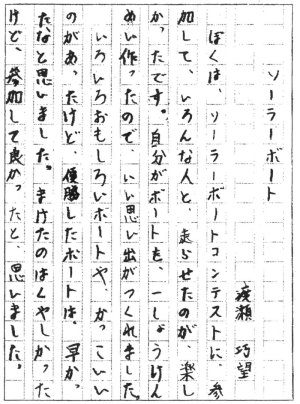 ソーラーボート
廣瀬 巧望
ぼくは、ソーラーボートコンテストに、参
加して、いろんな人と、走らせたのが、楽し
かったです。自分がボートを、一しょうけん
めい作ったので、いい思い出がつくれました。
いろいろおもしろいボートや、かっこいい
のがあったけど、優勝したボートは、早かっ
たなと思いました。まけたのはくやしかった
けど、参加して良かったと、思いました。